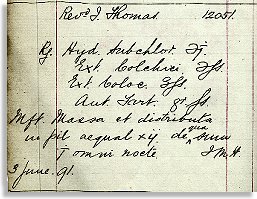 Revd J. Thomas 12051.
Rj Hyd. Subchlor. ʒj.
Ext. Colchici ʒfs.
Ext. Coloc. ʒfs.
Ant. Tart. gr fs.
Mft. Massa et distributa
in pil aequal xij de qua sum
j omni nocte. J.M.H.
3 June. 91.